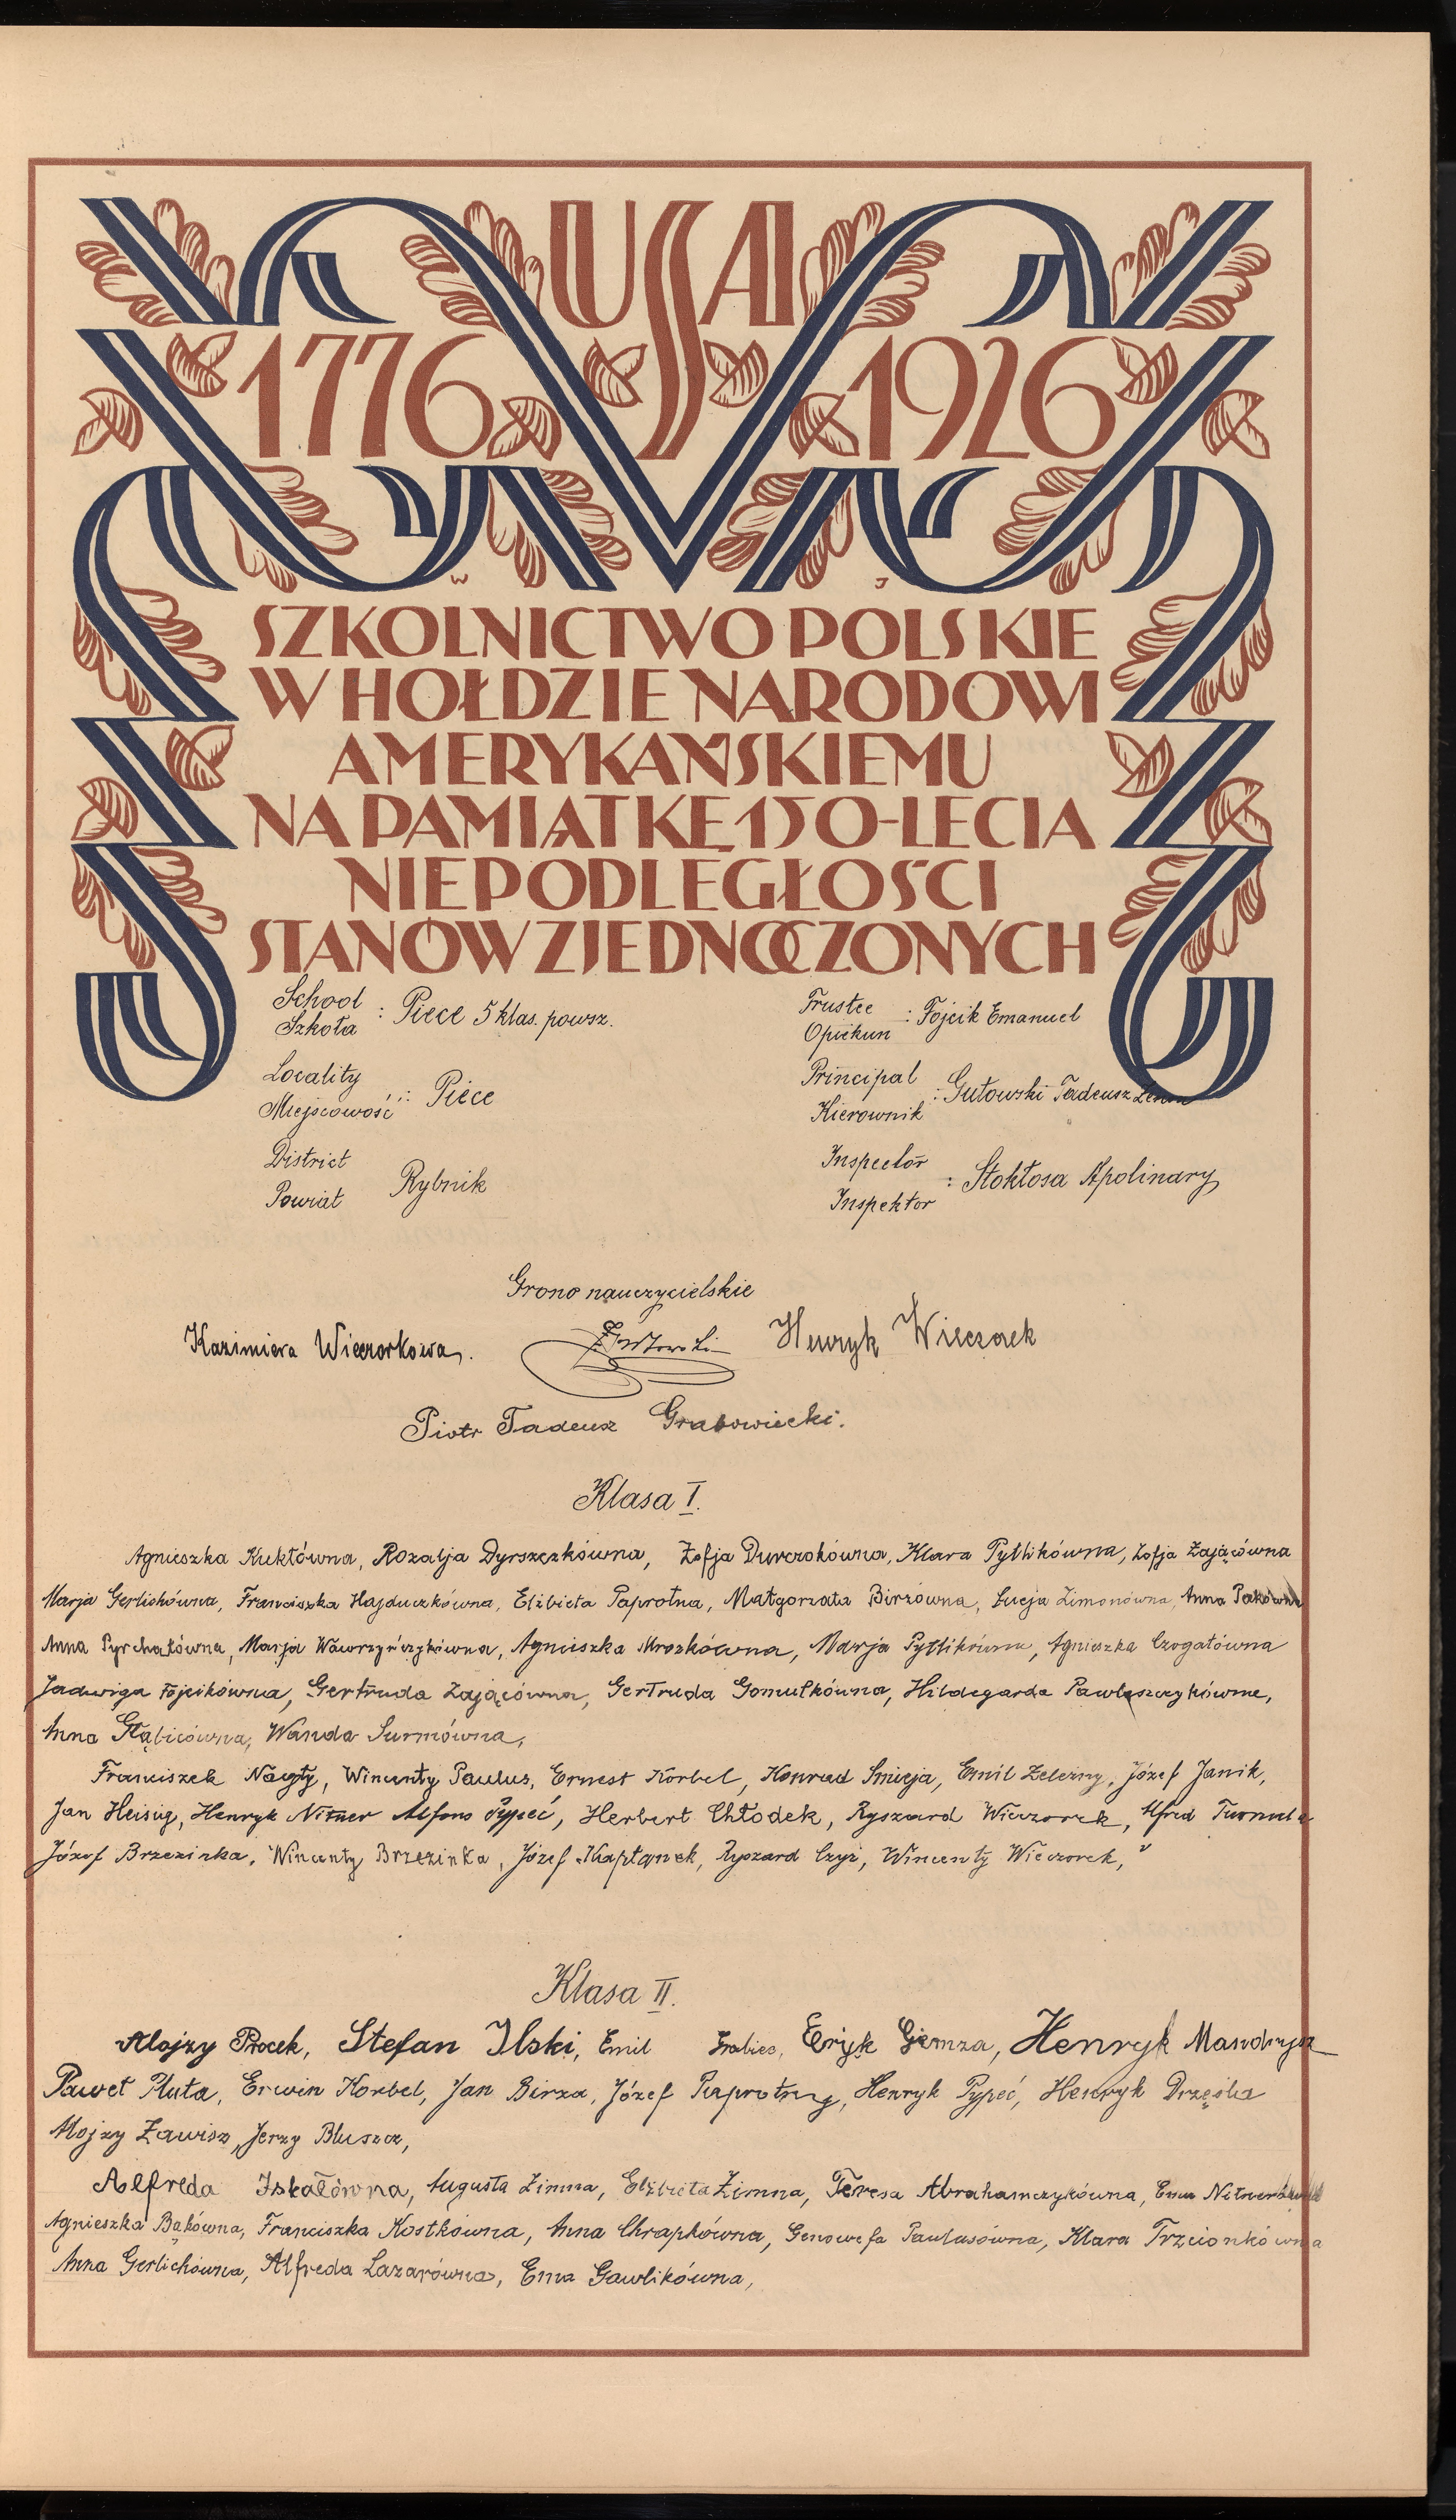 USA
1776 1926
W J
SZKOLNICTWO POLSKIE
W HOŁDZIE NARODOWI
AMERYKAŃSKIEMU
NA PAMIĄTKĘ 150-LECIA
NIEPODLEGŁOŚCI
STANÓW ZJEDNOCZONYCH
School
Szkoła : Piece 5 klas. powsz.
Locality
Miejscowość : Piece
District
Powiat Rybnik
Trustee
Opiekun : Fojcik Emanuel
Principal
Kierownik : Gutowski Tadeusz
Inspector
Inspektor : Stokłosa Apolinary
Grono nauczycielskie
Kazimiera Wieczorkowa. Henryk Wieczorek
Piotr Tadeusz Grabowiecki.
Klasa I.
Agnieszka Kuktówna, Rozalja Dyrszczkówna, Zofja Dworzokówna, Klara Pytlikówna, Zofja Zającówna
Marja Gerlichówna, Franciszka Hajduczkówna, Elżbieta Paprotna, Małgorzata Birzówna, Łucja Zimonówna, Anna
Anna Pyrchałówna, Marja Wawrzyńczykówna, Agnieszka Mrozkówna, Marja Pytlikówna, Agnieszka Czogałówna
Jadwiga Fojcikówna, Gertruda Zającówna, Gertruda Gomułkówna, Hildegarda Pawlaszczykówna,
Anna Głąbicówna, Wanda Surmówna,
Franciszek Nagły, Wincenty Paulus, Ernest Korbel, Konrad Smieja, Emil Żelezny, Józef Janik,
Jan Heisig, Henryk Nitner Alfons Pypeć, Herbert Chłodek, Ryszard Wieczorek, Alfred
Józef Brzezinka, Wincenty Brzezinka, Józef Kapłanek, Ryszard Czyż, Wincenty Wieczorek,
Klasa II.
Alojzy Procek, Stefan Ilski, Emil Grabiec, Eryk Giemza, Henryk Mandrysz
Paweł Pluta, Erwin Korbel, Jan Birza, Józef Paprotny, Henryk Pypeć, Henryk Drzęśla
Alojzy Zawisz, Jerzy Bluszcz,
Alfreda Iskałówna, Augusta Zimna, Elżbieta Zimna, Teresa Abrahamczykówna, Ema
Agnieszka Bąkówna, Franciszka Kostkówna, Anna Chrapkówna, Genowefa Paulusówna, Klara Trzcionkówna
Anna Gerlichówna, Alfreda Lazarówna, Ema Gawlikówna,